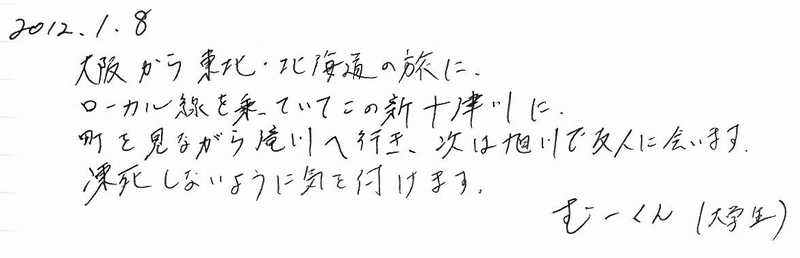 2012.1.8
大阪から東北・北海道の旅に、
ローカル線を乗っていてこの新十津川に、
町を見ながら滝川へ行き、次は旭川で友人に会います.
凍死しないように気を付けます.
むーくん(大学生)